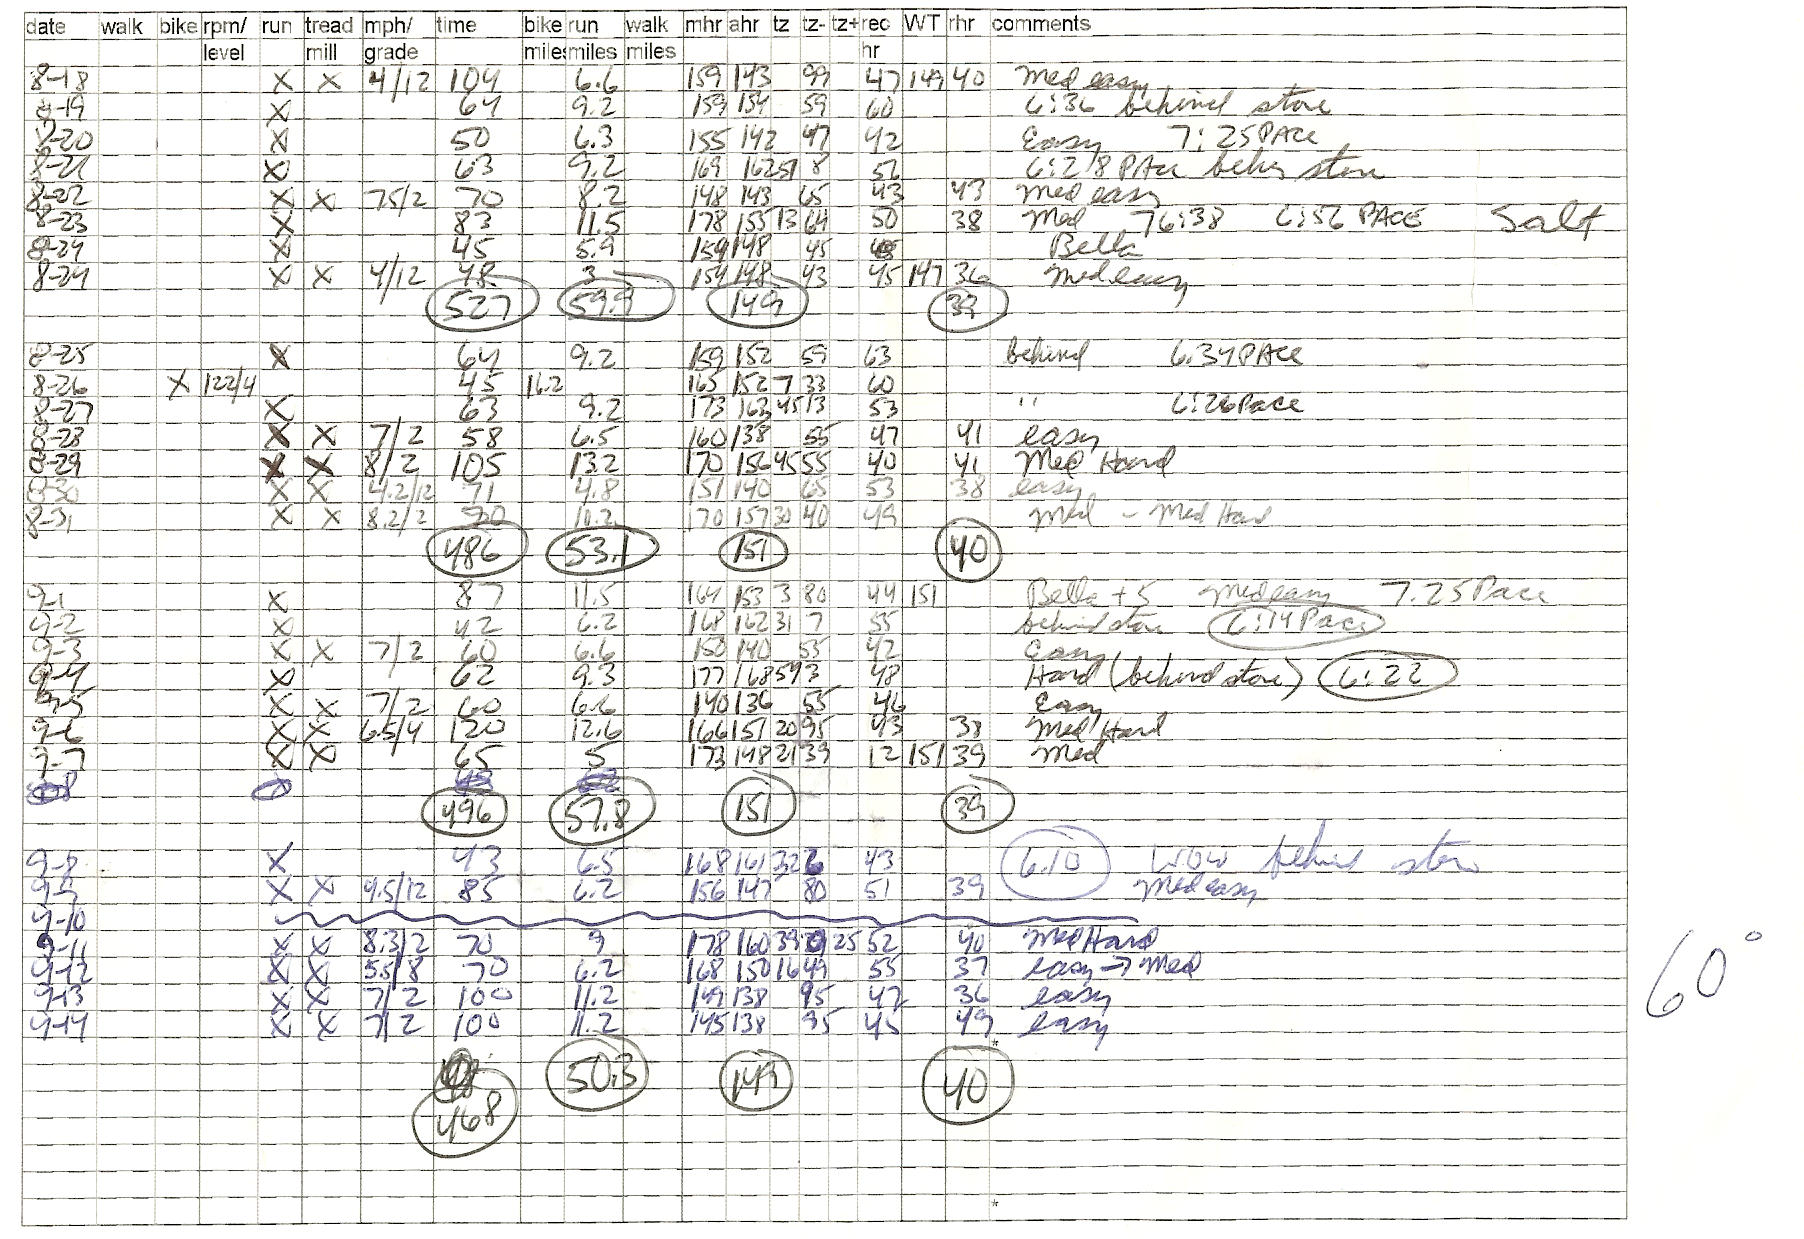 date walk bike rpm/ run tread mph/ time bike run walk mhr ahr tz tz- tz+ rec WT rhr comments
level mill grade miles miles miles hr
8-18 X X 4/12 104 6.6 159 143 99 47 149 40 Med easy
8-19 X 64 9.2 159 154 59 60 6:36 behind store
8-20 X 50 6.3 155 142 47 42 Easy 7:25 PAce
8-21 X 63 9.2 169 162 51 8 52 6:28 PAce behin store
8-22 X X 75/2 70 8.2 148 143 65 43 43 Med easy
8-23 X 83 11.5 178 155 13 64 50 38 Med 76:38 6:56 PACE Salt
8-24 X 45 5.9 159 148 45 Bella
8-24 X X 4/12 48 3 154 148 43 45 147 36 Med easy
527 59.9 149 39
8-25 X 64 9.2 159 152 59 63 behind 6:34 PAce
8-26 X 122/4 45 16.2 165 152 7 33 60
8-27 X 63 9.2 173 163 45 13 53 '' 6:26 Pace
8-28 X X 7/2 58 6.5 160 138 55 47 41 easy
8-29 X X 8/2 105 13.2 170 156 45 55 40 41 Med Hard
8-30 X X 4.2/12 71 4.8 151 140 65 53 38 easy
8-31 X X 8.2/2 70 10.2 170 157 30 40 49 Med - Med Hard
486 53.1 151 40
9-1 X 87 11.5 164 153 3 80 44 151 Bella + 5 Med easy 7.25 Pace
9-2 X 42 6.2 168 162 31 7 55 behind store 6:14 Pace
9-3 X X 7/2 60 6.6 150 140 55 42 Easy
9-4 X 62 9.3 177 168 59 3 48 Hard (behind store) 6:22
9-5 X X 7/2 60 6.6 140 136 55 46 Easy
9-6 X X 6.5/4 120 12.6 166 151 20 95 43 38 Med Hard
9-7 X X 65 5 173 148 21 39 12 151 39 Med
496 57.8 151 39
9-8 X 43 6.5 168 161 32 6 43 6.10 WOW behind store
9-9 X X 4.5/12 85 6.2 156 147 80 51 39 Med easy
9-10
9-11 X X 8.3/2 70 9 178 160 39 0 25 52 40 Med Hard
9-12 X X 5.5/8 70 6.2 168 150 16 49 55 37 easy → Med
9-13 X X 7/2 100 11.2 149 138 95 47 36 easy
9-14 X X 7/2 100 11.2 145 138 95 45 49 easy
60°
*
50.3 149 40
468
*